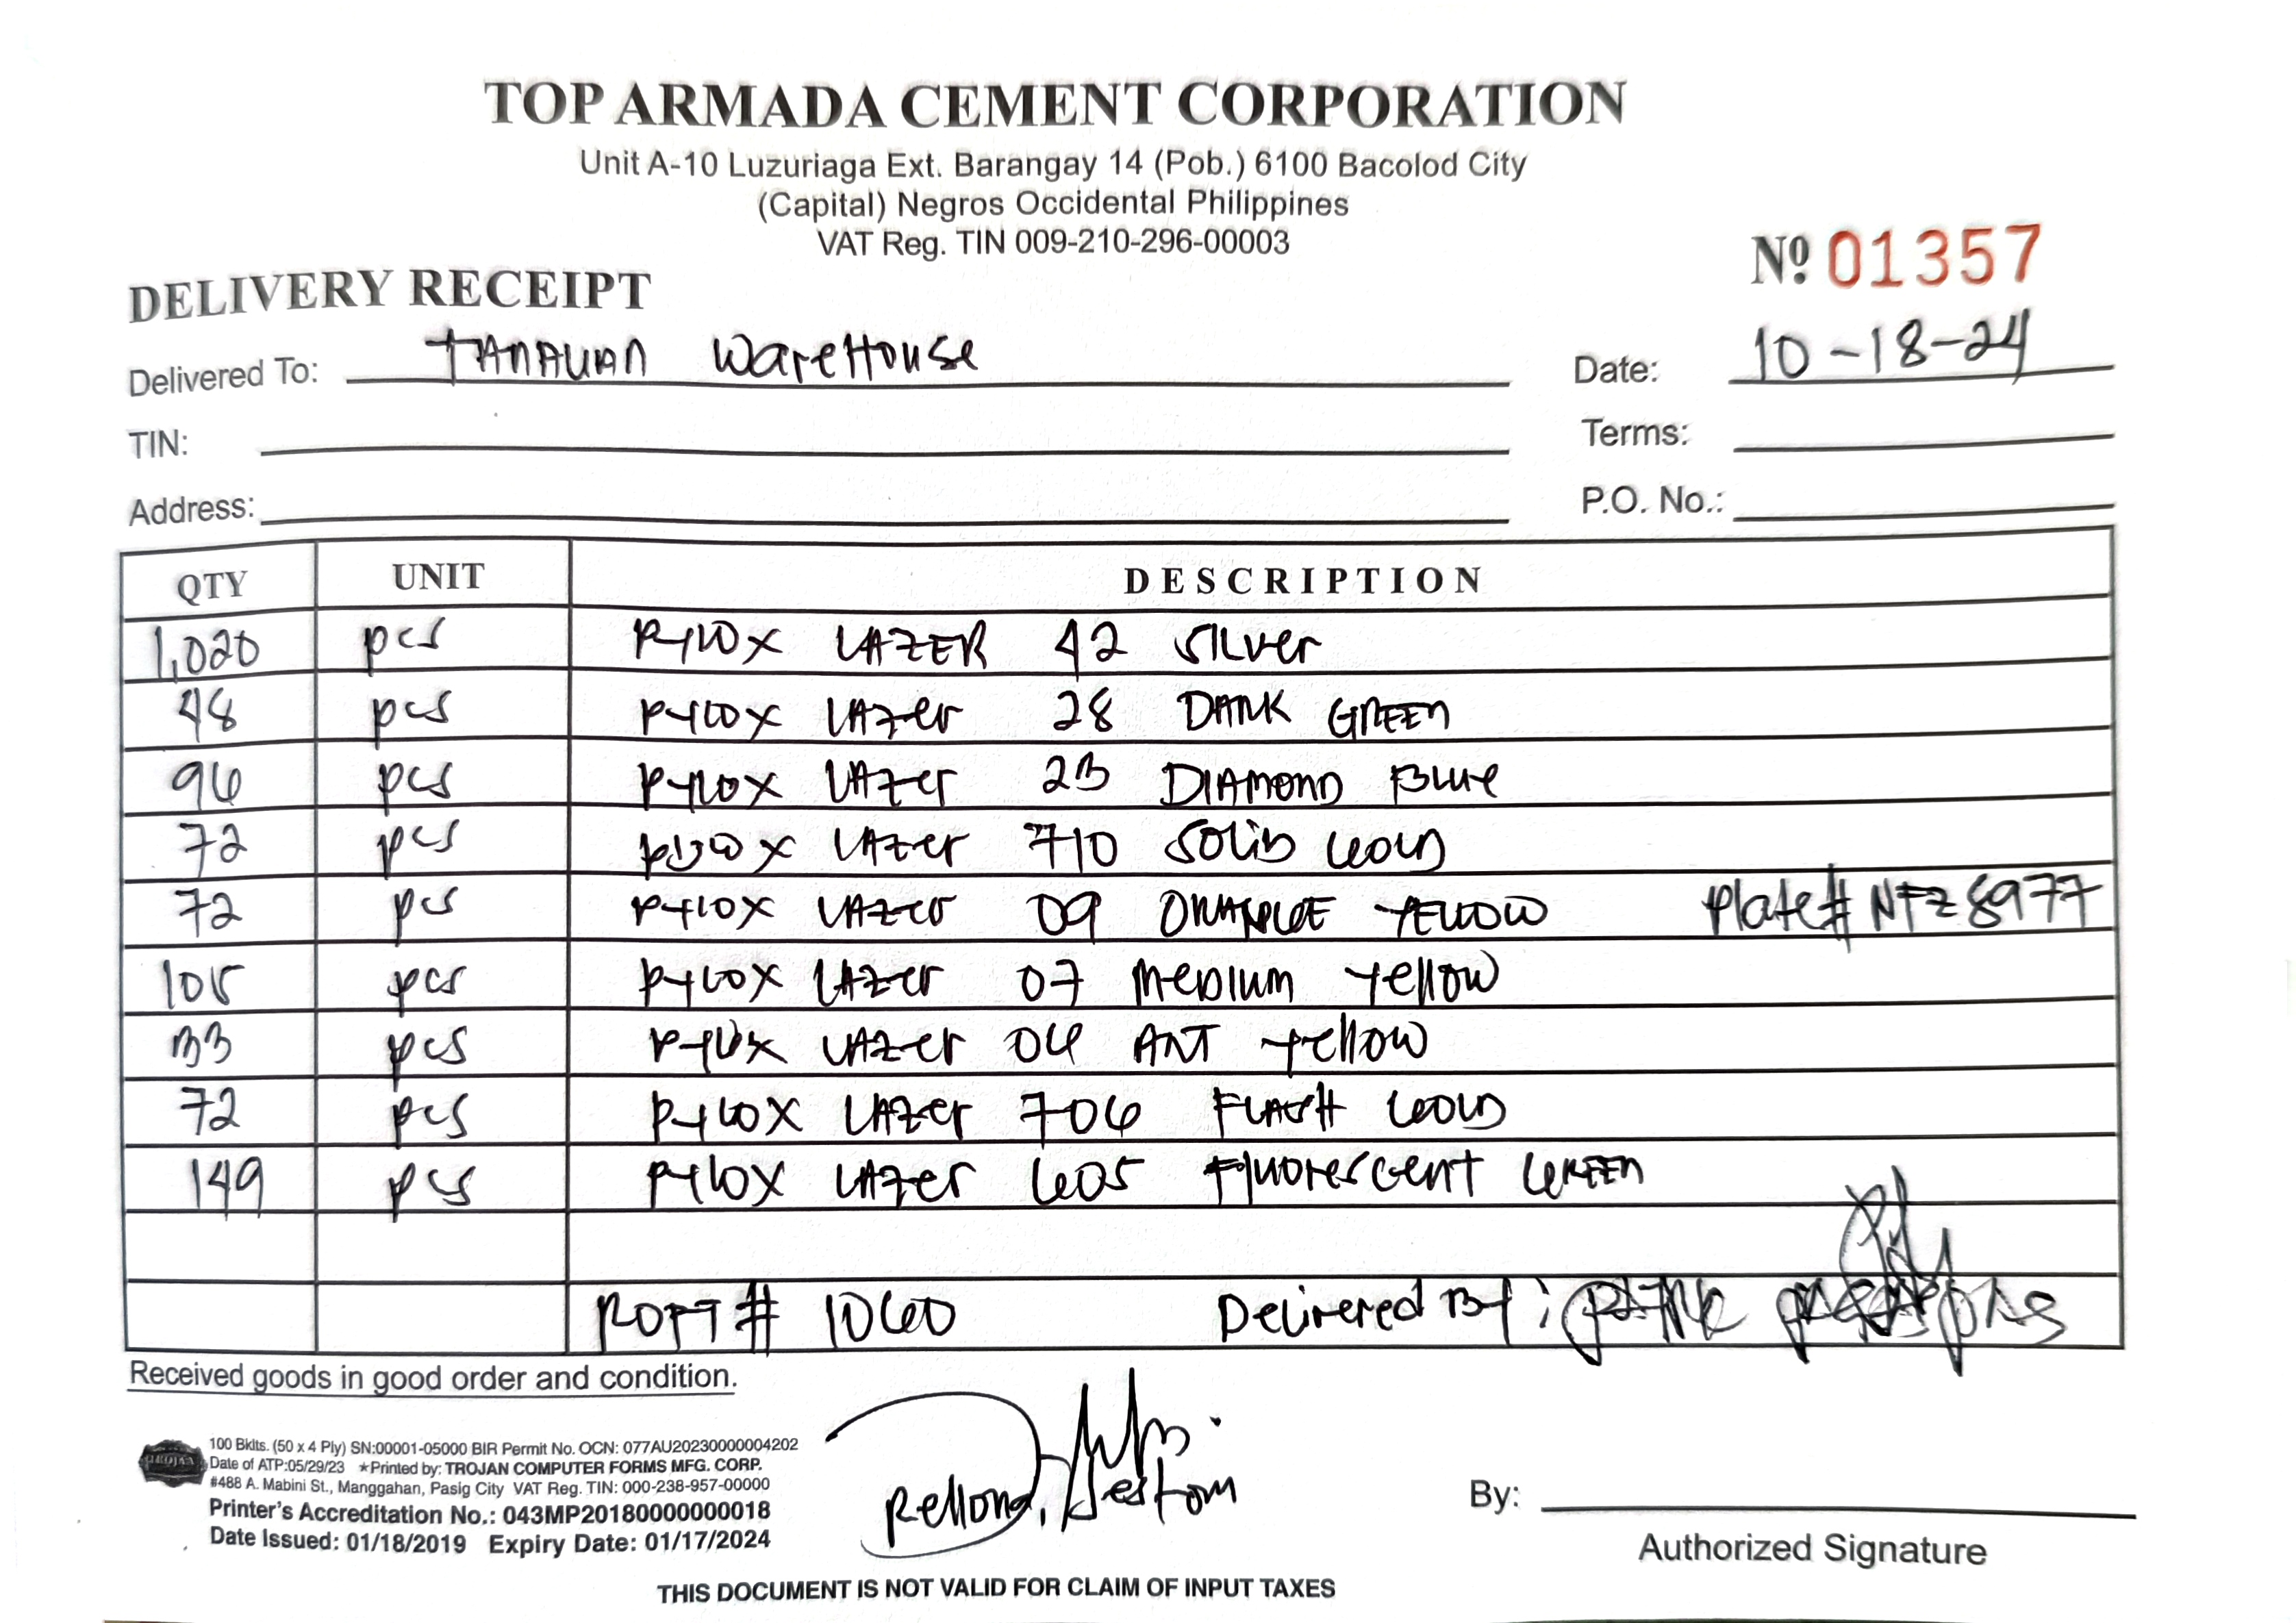 TOP ARMADA CEMENT CORPORATION
Unit A-10 Luzuriaga Ext. Barangay 14 (Pob.) 6100 Bacolod City
(Capital) Negros Occidental Philippines
VAT Reg. TIN 009-210-296-00003
Nº 01357
DELIVERY RECEIPT
Delivered To: TANAUAN WareHouse
Date: 10-18-24
TIN:
Terms:
Address:
P.O. No.:
QTY UNIT DESCRIPTION
1,020 pcs PYLOX LAZER 42 SILver
48 pcs PYLOX LAzer 28 DARK GREEN
96 pcs PYLOX LAzer 23 DIAMOND BLue
72 pcs PYLOX LAzer 710 SOLID GOLD
72 pcs PYLOX LAzer 09 ORANGE YELLOW Plate# NFZ 8977
105 pcs PYLOX LAzer 07 MEDIUM Yellow
33 pcs PYLOX LAzer 06 ANT Yellow
72 pcs PYLOX LAzer 706 FLASH GOLD
149 pcs PYLOX LAzer 605 Fluorescent GREEN
ROFT # 1060 Delivered By:
Received goods in good order and condition.
TROJAN
100 Bklts. (50 x 4 Ply) SN:00001-05000 BIR Permit No. OCN: 077AU20230000004202
Date of ATP:05/29/23 ★Printed by: TROJAN COMPUTER FORMS MFG. CORP.
#488 A. Mabini St., Manggahan, Pasig City VAT Reg. TIN: 000-238-957-00000
Printer's Accreditation No.: 043MP20180000000018
Date Issued: 01/18/2019 Expiry Date: 01/17/2024
By:
Authorized Signature
THIS DOCUMENT IS NOT VALID FOR CLAIM OF INPUT TAXES